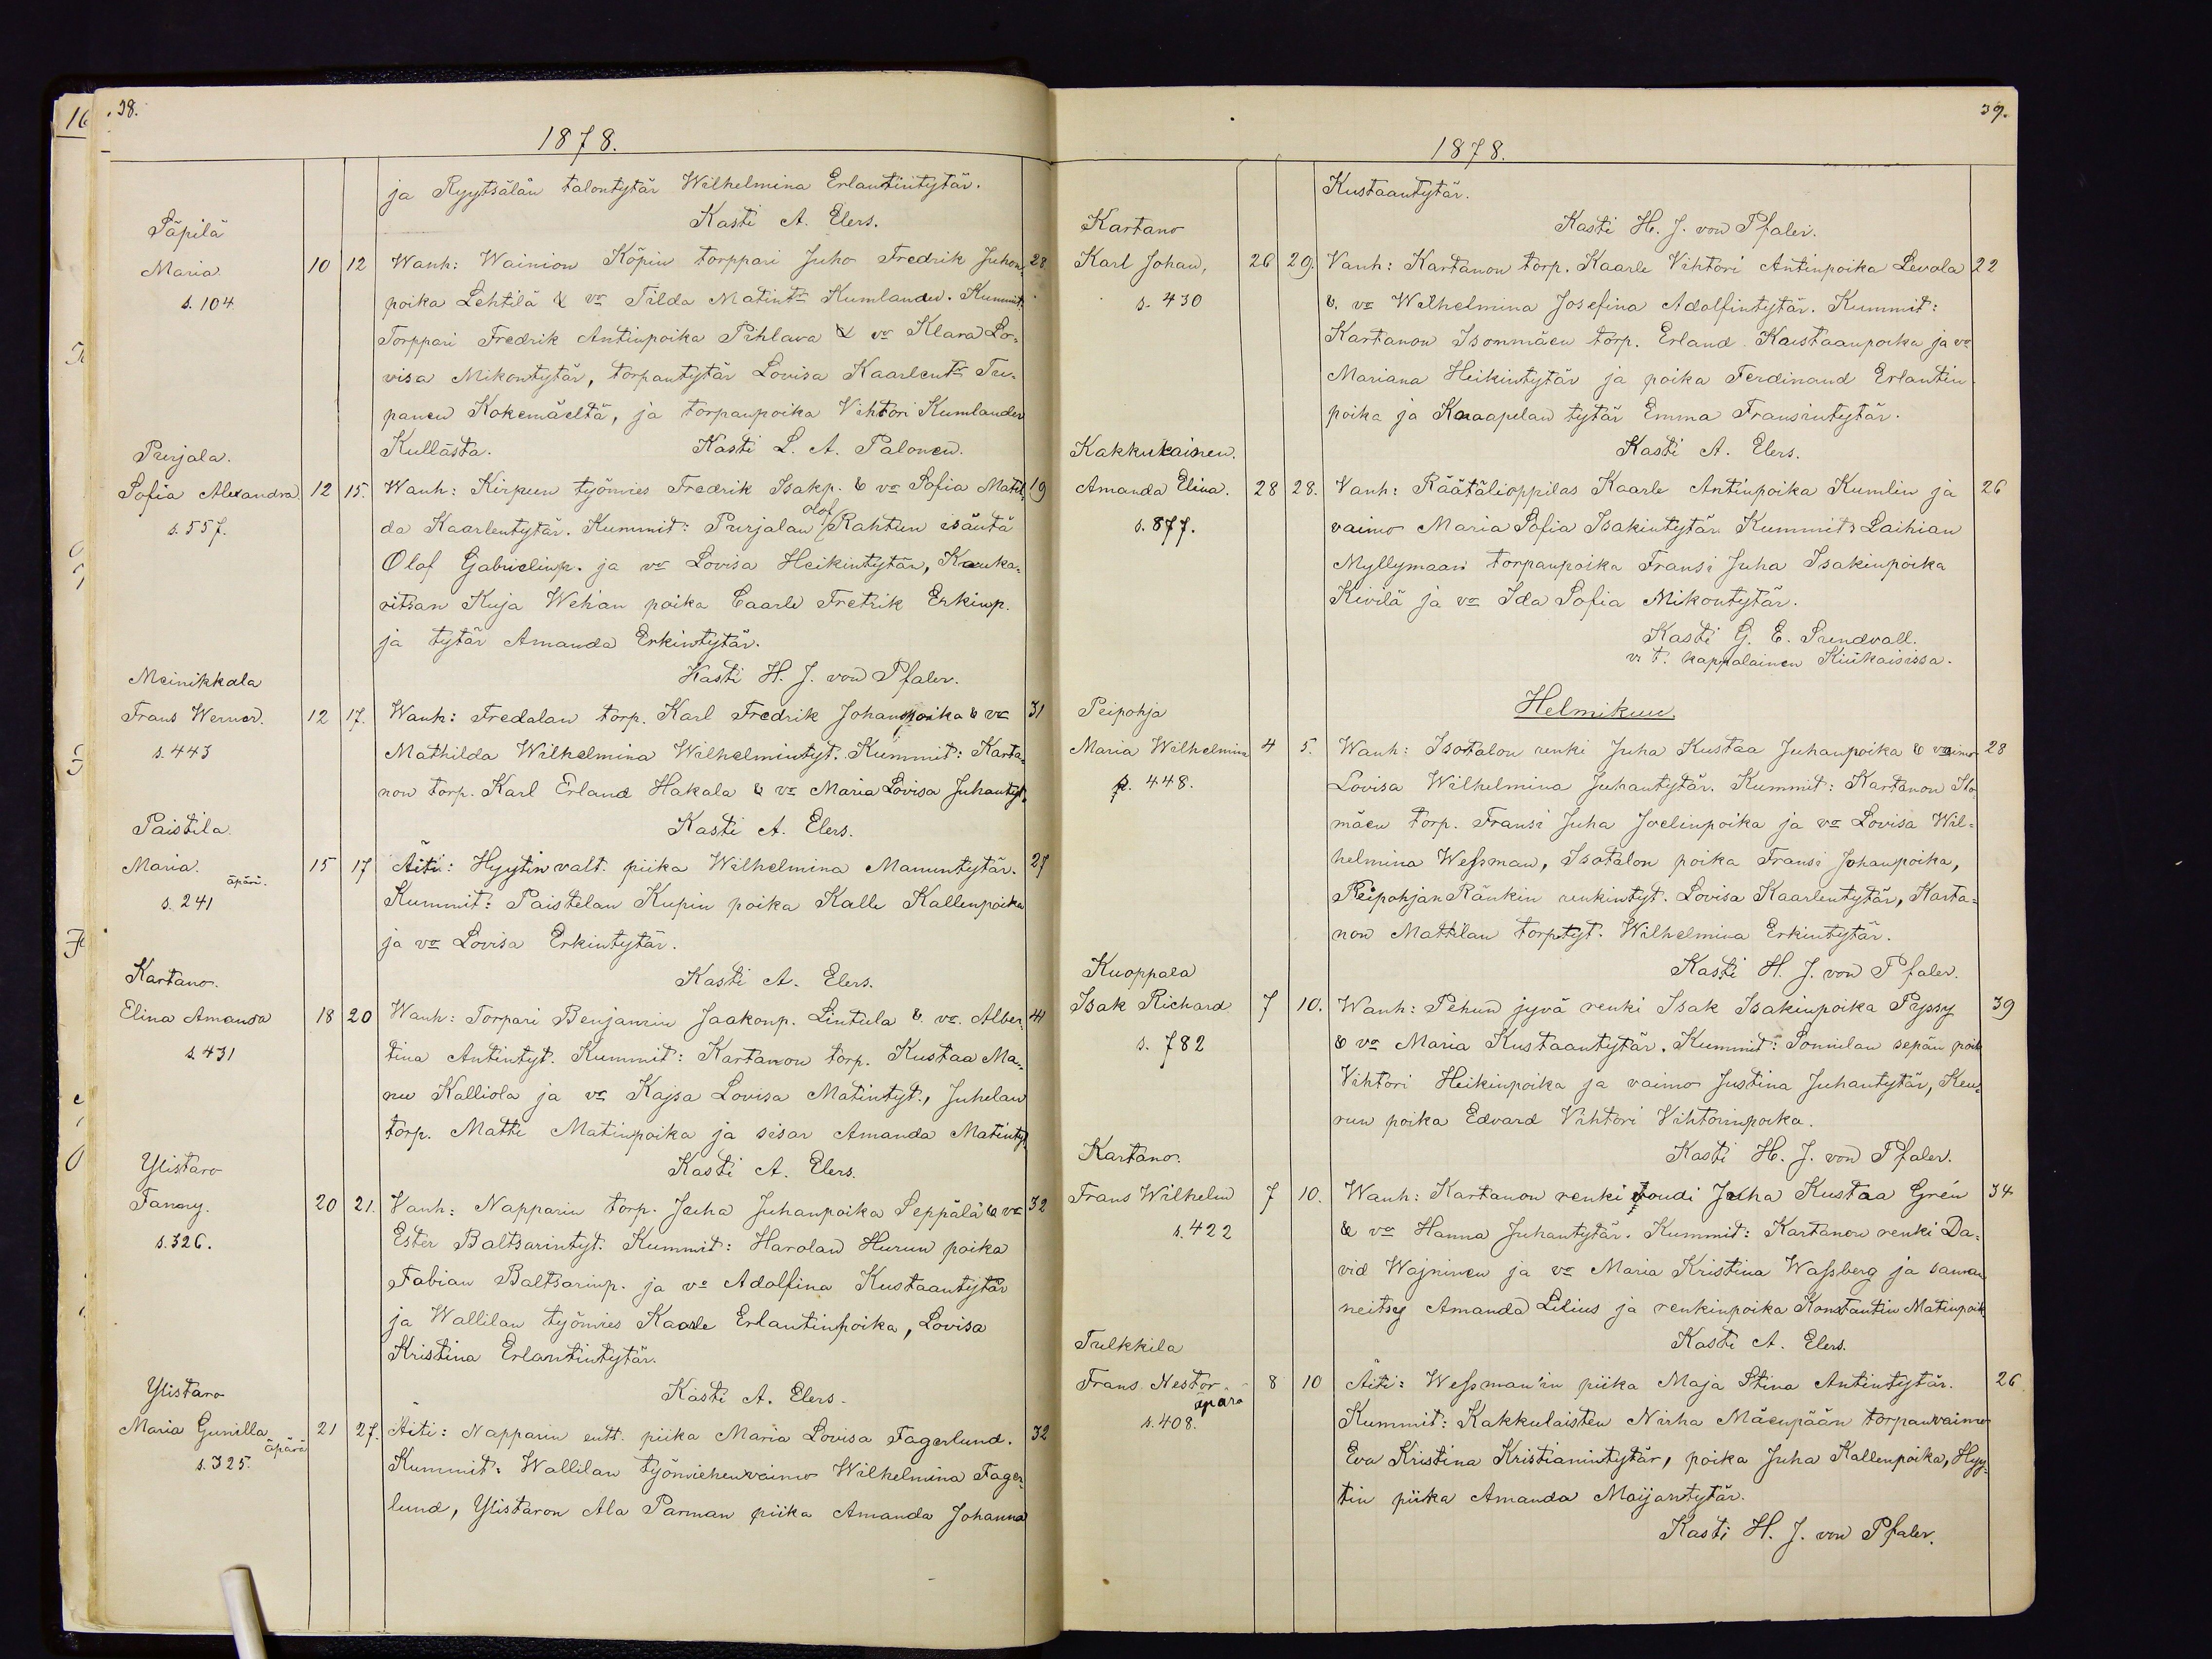 38.
1878.
ja Ryytsälän talontytär Wilhelmina Erlantintytär.
Kasti A. Elers.
Säpilä
Maria 10 12 Wanh: Wainion Köpin torppari Juho Fredrik Juhon 28
s. 104 poika Lehtilä & vo Tilda Matintr Kumlander. Kummit:
Torppari Fredrik Antinpoika Pihlava & vo Klara Lo-
visa Mikontytär, torpantytär Lovisa Kaarlentr Tu-
panen Kokemäeltä, ja torpanpoika Vihtori Kumlander
Kullasta. Kasti L. A. Palonen.
Purjala.
Sofia Alexandra 12 15. Wanh: Kirpun työmies Fredrik Isakp. & vo Sofia Matil 19
s. 557. da Kaarlentytär. Kummit: Purjalan Olof Rahtun isäntä
Olof Gabrielinp. ja vo Lovisa Heikintytär, Kauka-
ritsan Kuja Wehan poika Caarle Fretrik Erkinp.
ja tytär Amanda Erkintytär.
Kasti H. J. von Pfaler.
Meinikkala
Frans Werner. 12 17. Wanh: Fredalan torp. Karl Fredrik Johanpoika & vo 31
s. 443 Mathilda Wilhelmina Wilhelmintyt. Kummit: Karta-
non torp. Karl Erland Hakala & vo Maria Lovisa Juhantyt.
Kasti A. Elers.
Paistila.
Maria. äpärä. 15 17 Äiti: Hyytin valt. piika Wilhelmina Manuntytär. 27
s. 241 Kummit: Paistilan Kupin poika Kalle Kallenpoika
ja vo Lovisa Erkintytär.
Kasti A. Elers.
Kartano.
Elina Amanda 18 20 Wanh: Torpari Benjamin Jaakonp. Lintula & vo. Alber- 41
s. 431 tina Antintyt. Kummit: Kartanon torp. Kustaa Ma-
nu Kalliola ja vo Kajsa Lovisa Matintyt., Juhelan
torp. Matti Matinpoika ja sisar Amanda Matintyt
Kasti A. Elers.
Ylistaro
Fanny. 20 21. Vanh: Napparin torp. Juha Juhanpoika Seppälä & vo 32
s. 326. Ester Baltsarintyt. Kummit: Harolan Hurun poika
Fabian Baltsarinp. ja vo Adolfina Kustaantytär
ja Wallilan työmies Kaarle Erlantinpoika, Lovisa
Kristina Erlantintytär.
Kasti A. Elers.
Ylistaro
Maria Gunilla äpärä 21 27. Äiti: Napparin entt. piika Maria Lovisa Fagerlund. 32
s. 325. Kummit: Wallilan työmiehenvaimo Wilhelmina Fager-
lund, Ylistaron Ala Parman piika Amanda Johanna
39.
1878.
Kustaantytär.
Kasti H. J. von Pfaler.
Kartano
Karl Johan, 26 29. Vanh: Kartanon torp. Kaarle Vihtori Antinpoika Levola 22
s. 430 &. vo Wilhelmina Josefina Adolfintytär. Kummit:
Kartanon Isommäen torp. Erland Kustaanpoika ja vo
Mariana Heikintytär ja poika Ferdinand Erlantin
poika ja Kraapelan tytär Emma Fransintytär.
Kasti A. Elers.
Kakkulainen.
Amanda Elina. 28 28. Vanh: Räätälioppilas Kaarle Antinpoika Kumlin ja 26
s. 877. vaimo Maria Sofia Isakintytär Kummit: Laihian
Myllymaan torpanpoika Fransi Juha Isakinpoika
Kivilä ja vo Ida Sofia Mikontytär.
Kasti G. E. Sundvall.
v. t. kappalainen Kiukaisissa.
Helmikuu.
Peipohja
Maria Wilhelmina 4 5. Wanh: Isotalon renki Juha Kustaa Juhanpoika & vaimo 28
s. 448. Lovisa Wilhelmina Juhantytär. Kummit: Kartanon Iso
mäen torp. Fransi Juha Joelinpoika ja vo Lovisa Wil-
helmina Wessman, Isotalon poika Fransi Johanpoika,
Peipohjan Ränkin renkintyt. Lovisa Kaarlentytär, Karta-
non Mattilan torp.tyt. Wilhelmina Erkintytär.
Kasti H. J. von Pfaler.
Kuoppala
Isak Richard 7 10. Wanh: Pehun jyvä renki Isak Isakinpoika Pyssy 39
s. 782 & vo Maria Kustaantytär. Kummit: Sonnilan sepän poika
Vihtori Heikinpoika ja vaimo Justina Juhantytär, Keu-
run poika Edvard Vihtori Vihtorinpoika.
Kasti H. J. von Pfaler.
Kartano.
Frans Wilhelm 7 10. Wanh: Kartanon renki foudi Juha Kustaa Grén 34
s. 422 & vo Hanna Juhantytär. Kummit: Kartanon renki Da-
vid Wajninen ja vo Maria Kristina Wassberg ja saman
neitsy Amanda Lilius ja renkinpoika Konstantin Matinpoik.
Kasti A. Elers.
Tulkkila
Frans Nestor äpärä 8 10 Äiti: Wessman'in piika Maja Stina Antintytär. 26
s. 408. Kummit: Kakkulaisten Nirha Mäenpään torpanvaimo
Eva Kristina Kristianintytär, poika Juha Kallenpoika, Hyy-
tin piika Amanda Maijantytär.
Kasti H. J. von Pfaler.